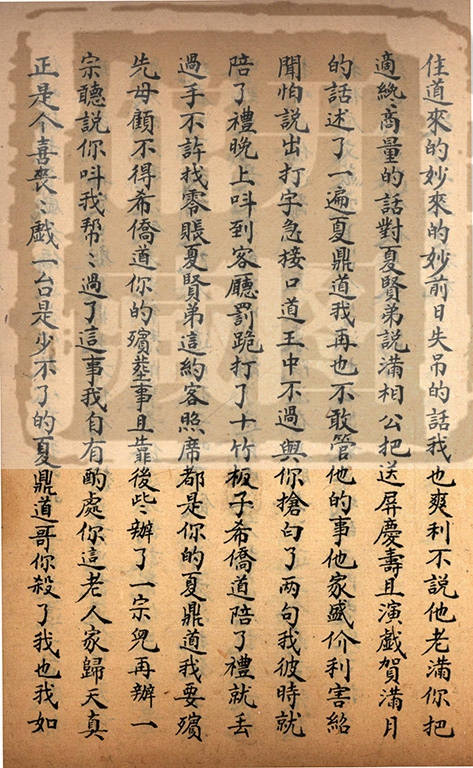 住道來的妙來的妙前日失吊的話我也爽利不說他老滿你把
適纔商量的話對夏賢弟說滿相公把送屏慶壽且演戲賀滿月
的話述了一遍夏鼎道我再也不敢管他的事他家盛价利害紹
聞怕說出打字急接口道王中不過與你搶白了两句我彼時就
陪了禮晚上呌到客廳罰跪打了十竹板子希僑道陪了禮就丢
過手不許找零賬夏賢弟這約客照席都是你的夏鼎道我要殯
先母顧不得希僑道你的殯塟事且靠後些辦了一宗兒再辦一
宗聽說你呌我帮ミ過了這事我自有酌處你這老人家歸天真
正是个喜喪ミ戲一台是少不了的夏鼎道哥你殺了我也我如